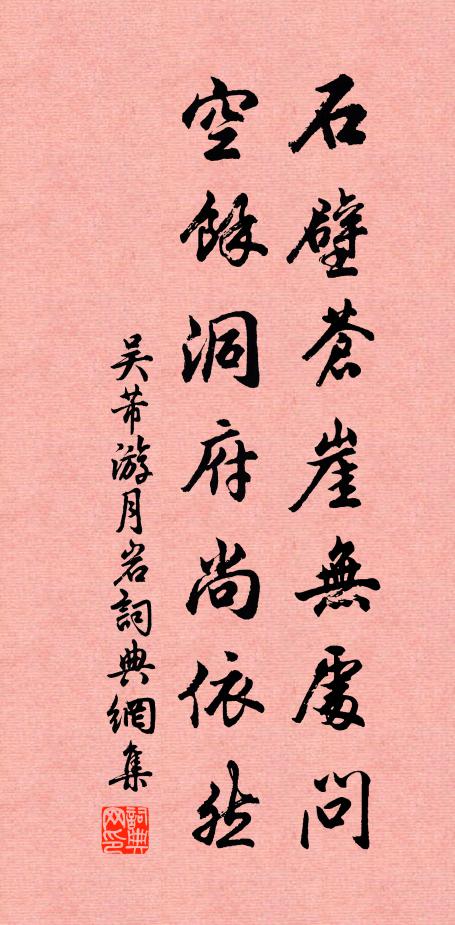 石壁蒼崖無處問
空餘洞府尚依然
吴芾游月岩詞典網集
詞典网印